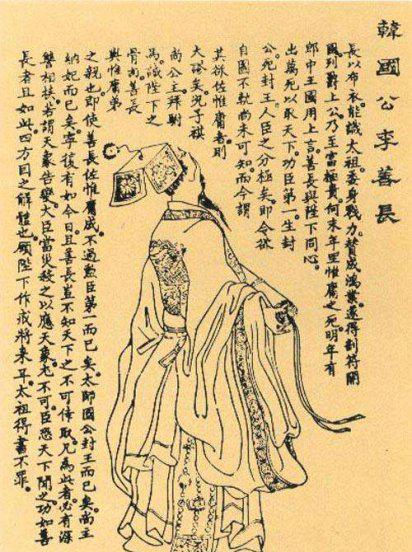 韓國公李善長
長以布衣能識太祖委身戮力。贊成鴻業遂得剖符開
國列爵上公乃至富極貴何末年里惟庸之死明年有
郎中王國用上言善長與陛下同心。
出萬死以取天下功臣第一生封
公死封王人臣之分極矣即令欲
自圖不軌尚未可知而今謂
其欲佐惟庸者則
大謬矣況子祺
尚公主拜尉
馬。誠陛下之
骨肉善長
與惟庸第
之親也即使善長佐惟庸成。不過勲臣第一而已矣。太師國公封王而已矣。尚主
納妃而已矣。寧復有如今日且善長豈不知天下之不可倖取。兄為此者必有深
讐相挾。若謂天象告變大臣當災。殺之以應天象尤不可。臣恐天下聞之功如善
長者且如此。四方因之解體也。願陛下作戒將來耳。太祖得書不罪。